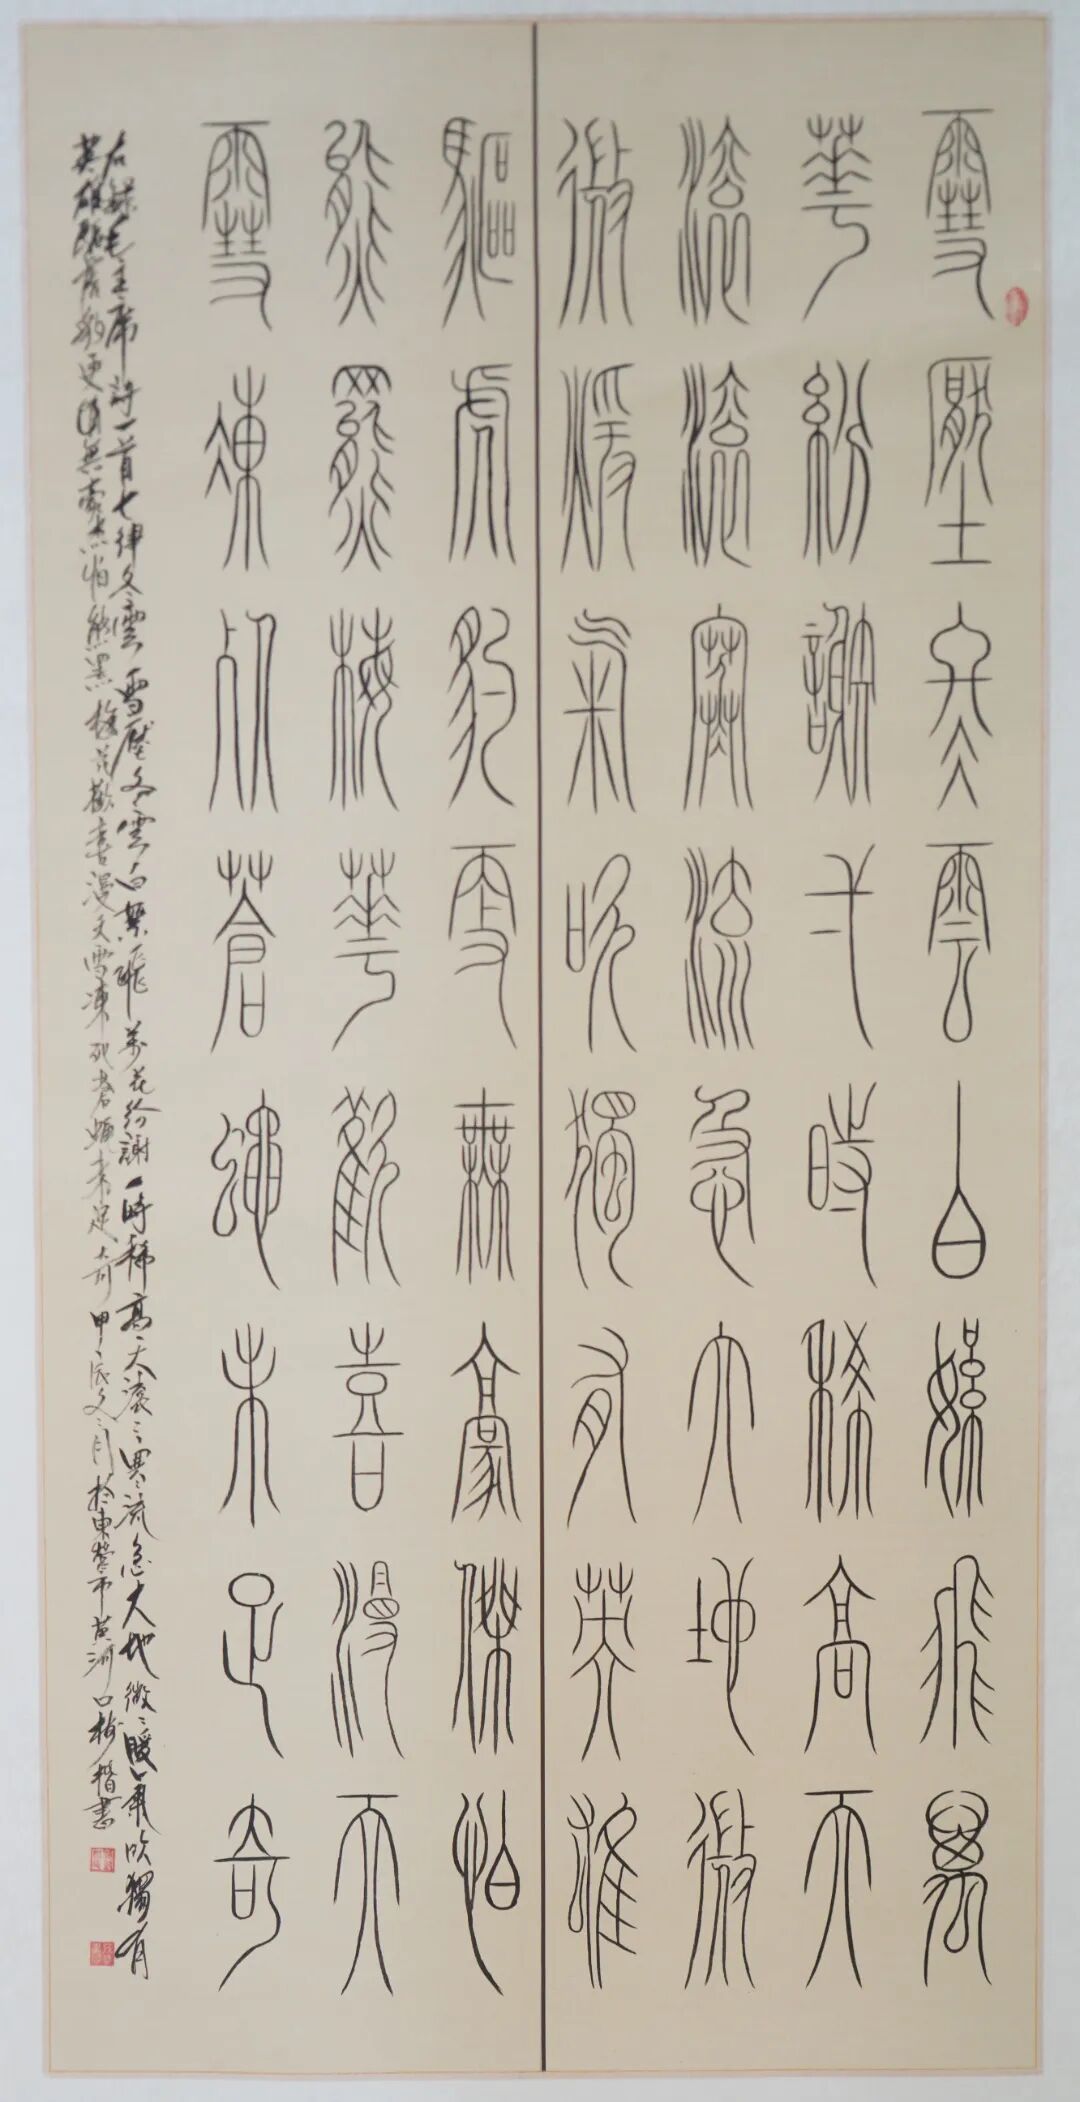 雪壓冬雲白絮飛萬
華紛謝弌時稀高天
滾滾寒流急大地微
微煖氣吹獨有英雄
驅虎豹更無豪傑怕
熊羆梅華歡喜漫天
雪凍死蒼蠅未足奇
右錄毛主席詩一首七律冬雲雪壓冬雲白絮飛萬花紛謝一時稀高天滾滾寒流急大地微微暖氣吹獨有
英雄驅虎豹更無豪杰怕熊羆梅花歡喜漫天雪凍死蒼蠅未足奇甲辰冬月於東營市黃河口書